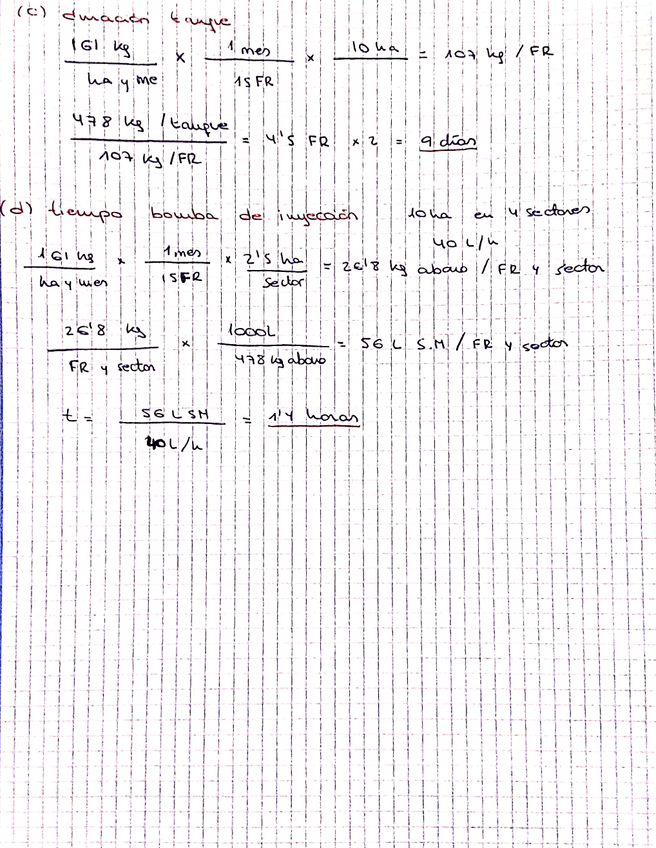 (c) duración tanque
161 kg / ha y me × 1 mes / 15 FR × 10 ha = 107 kg / FR
478 kg / tanque / 107 kg / FR = 4'5 FR × 2 = 9 días
(d) tiempo bomba de inyección 10 ha en 4 sectores
40 L/h
161 kg / ha y mes × 1 mes / 15 FR × 2'5 ha / sector = 26'8 kg abono / FR y sector
26'8 kg / FR y sector × 1000L / 478 kg abono = 56 L S.M / FR y sector
t = 56 L SM / 40 L/h = 1'4 horas